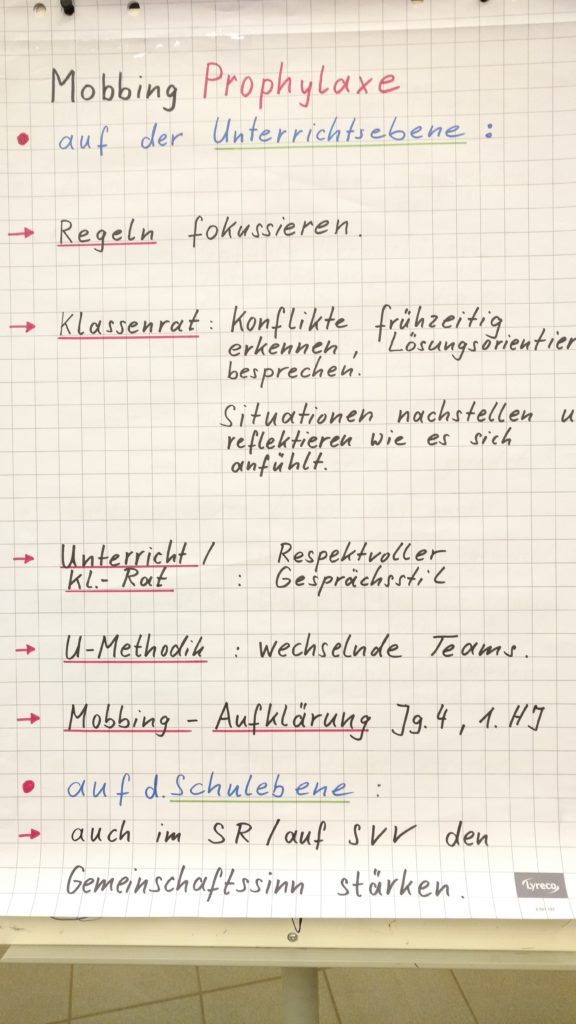 Mobbing Prophylaxe
• auf der Unterrichtsebene :
→ Regeln fokussieren.
→ Klassenrat : Konflikte frühzeitig
erkennen , Lösungsorientier
besprechen.
Situationen nachstellen u
reflektieren wie es sich
anfühlt.
→ Unterricht / Respektvoller
Kl.- Rat : Gesprächsstil
→ U-Methodik : wechselnde Teams.
→ Mobbing - Aufklärung Jg. 4 , 1. HJ
• auf d. Schulebene :
→ auch im SR / auf SVV den
Gemeinschaftssinn stärken.
Lyreco